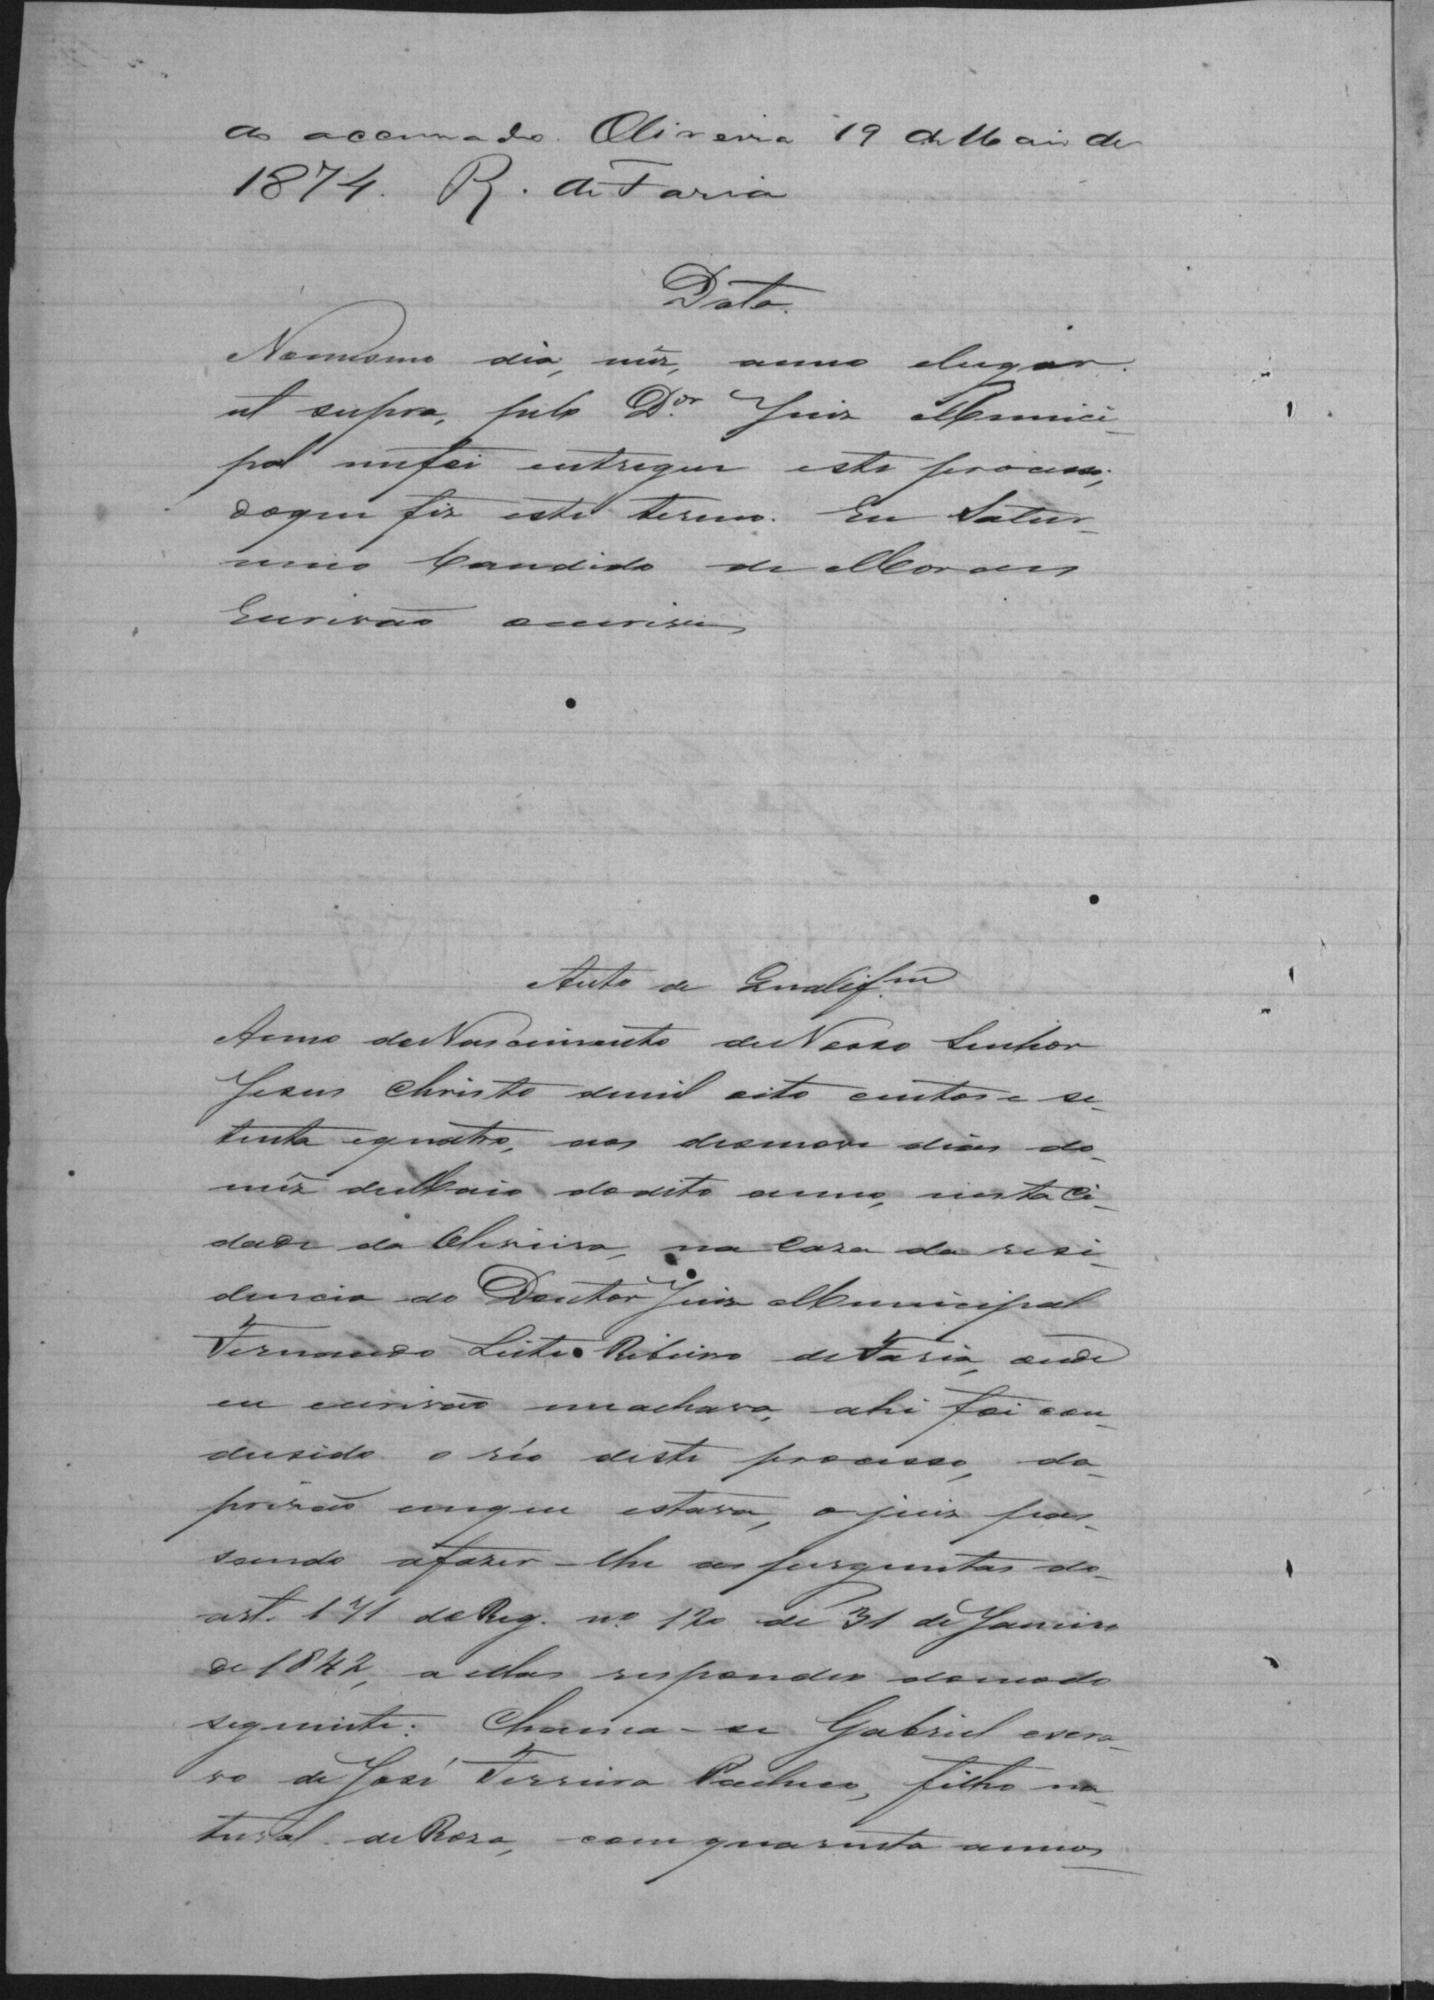 do accusado. Oliveira 19 de Maio de
1874. R. de Faria
Data.
No mesmo dia, mêz, anno e lugar
ut supra, pelo Dor. Juiz Munici-
pal me foi entregue este processo;
do que fiz este termo. Eu Satur-
nino Candido de Moraes
Escrivão o escrevi
Auto de Qualifm
Anno do Nascimento de Nosso Senhor
Jesus Christo de mil oito centos e se-
tenta e quatro, aos desenove dias do
mêz de Maio do dito anno, nesta Ci-
dade da Oliveira, na Caza da resi-
dencia do Doutor Juiz Municipal
Fernando Leite Ribeiro de Faria, onde
eu escrivão me achava, ahi foi con-
dusido o réo deste processo, da
prizão em que estava, o juiz pas-
sando a fazer-lhe as perguntas do
art. 171 do Reg. nº 120 de 31 de Janeiro
de 1842, a ellas respondeo do modo
seguinte: Chama-se Gabriel escra-
vo de José Ferreira Pacheco, filho na-
tural de Roza, com quarenta annos